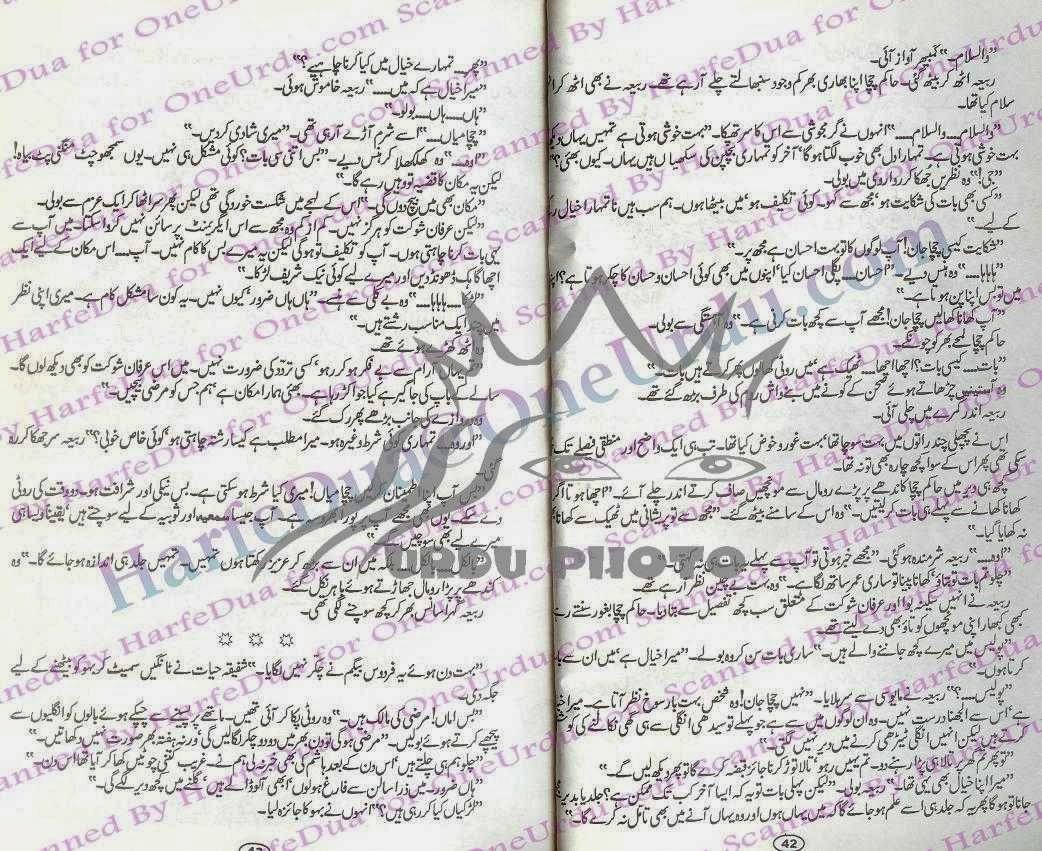 ”والسلام۔“ گمبھیر آواز آئی۔
ربیعہ اٹھ کر بیٹھ گئی۔ حاکم چچا اپنا بھاری بھرکم وجود سنبھالتے چلے آ رہے تھے۔ ربیعہ نے بھی اٹھ کر
سلام کیا تھا۔
”والسلام۔۔۔۔ والسلام۔۔۔۔“ انہوں نے گرمجوشی سے اس کا سر تھپکا۔ ”بہت خوشی ہوتی ہے تمہیں یہاں
بہت خوشی ہوتی ہے۔ تمہارا دل بھی خوب لگتا ہو گا‘ آخر کو تمہاری بچپن کی سکھیاں ہیں یہاں۔ کیوں بھئی؟“
”جی!“ وہ نظریں جھکا کر رواروی میں بولی۔
”کسی بھی بات کی شکایت ہو‘ مجھ سے کہو۔ کوئی تکلیف ہو‘ میں بیٹھا ہوں۔ ہم سب ہیں نا تمہارا خیال
کے لیے۔“
”شکایت کیسی چچا جان! آپ لوگوں کا تو بہت احسان ہے مجھ پر۔“
”ہاہاہا۔۔۔۔“ وہ ہنس دیے۔ ”احسان۔۔۔ پگلی احسان کیا‘ اپنوں میں بھی کوئی احسان وحسان کا چکر ہوتا ہے؟
میں تو بس اپنا پن ہوتا ہے۔“
”آپ کھانا کھا لیں چچا جان! مجھے آپ سے کچھ بات کرنی ہے۔“ وہ آہستگی سے بولی۔
حاکم چچا لمحے بھر کو چونکے۔
”بات۔۔۔۔ کیسی بات؟ اچھا اچھا۔۔۔ ٹھیک ہے‘ میں روٹی کھا لوں پھر کرتے ہیں بات۔“
وہ آستینیں چڑھاتے ہوئے صحن کے کونے میں بنے واش روم کی طرف بڑھ گئے تھے۔
ربیعہ اندر کمرے میں چلی آئی۔
اس نے پچھلی چند راتوں میں بہت سوچا تھا‘ بہت غور و خوض کیا تھا۔ تب ہی ایک واضح اور منطقی فیصلے تک
سکی تھی پھر اس کے سوا کچھ چارہ بھی تو نہ تھا۔
کچھ ہی دیر میں حاکم چچا کاندھے پر پڑے رومال سے مونچھیں صاف کرتے اندر چلے آئے۔ ”اچھا ہوتا اگر
کھانا کھانے سے پہلے ہی بات کر لیتیں۔“ وہ اس کے سامنے بیٹھ گئے۔ ”مجھ سے تو پریشانی میں ٹھیک سے کھانا
نہ کھایا گیا۔“
”اوہ۔۔۔“ ربیعہ شرمندہ ہو گئی۔ ”مجھے خبر ہوتی تو آپ سے پہلے بات ہی کہتی۔“
”چلو تم بات تو بتاؤ‘ کھانا پینا تو ساری عمر ساتھ لگا ہے۔“ وہ بہت بے چین نظر آ رہے تھے۔
ربیعہ نے انہیں سکینہ بوا اور عرفان شوکت کے متعلق سب کچھ تفصیل سے بتا دیا۔ حاکم چچا بغور سنتے رہے
کبھی کبھار اپنی مونچھوں کو تاؤ بھی دے لیتے تھے۔
”پولیس میں میرے کچھ جاننے والے ہیں۔“ ساری بات سن کر وہ بولے۔ ”میرا خیال ہے‘ میں ان سے بات
کرتا ہوں۔“
”پولیس۔۔۔۔؟“ ربیعہ نے مایوسی سے سر ہلایا۔ ”نہیں چچا جان! وہ شخص بہت بارسوخ نظر آتا ہے۔ میرا
ہے‘ اس سے الجھنا درست نہیں۔ وہ ان لوگوں میں سے ہے جو پہلے تو سیدھی انگلی سے ہی گھی نکالنے کی
کرتے ہیں لیکن انہیں انگلی ٹیڑھی کرنے میں دیر نہیں لگتی۔“
”تو پھر تم گھر پر تالا ہی پڑا رہنے دو۔ تم یہیں رہو‘ تالا توڑ کر ناجائز قبضہ کرے گا تو پھر دیکھ لیں گے۔“
”میرا اپنا خیال بھی یہی تھا۔“ ربیعہ بولی۔ ”لیکن پہلی بات تو یہ کہ ایسا آخر کب تک ممکن ہے؟ جلد یا بدیر
جانا تو ہو گا پھر یہ کہ جلد ہی اسے علم ہو جائے گا کہ میں یہاں ہوں اور وہ یہاں آنے میں بھی تامل نہ کرے گا۔“
42
”پھر۔۔۔۔ تمہارے خیال میں کیا کرنا چاہیے؟“
”میرا خیال ہے کہ میں۔۔۔۔“ ربیعہ خاموش ہوئی۔
”ہاں۔۔۔ ہاں۔۔۔ بولو۔“
”چچا میاں۔۔۔۔“ اسے شرم آڑے آ رہی تھی۔ ”میری شادی کر دیں۔“
”اوہ۔۔۔“ وہ کھلکھلا کر ہنس دیے۔ ”بس اتنی سی بات؟ کوئی مشکل ہی نہیں۔ یوں سمجھو چٹ منگنی پٹ بیاہ!
لیکن یہ مکان کا قضیہ تو وہیں رہے گا۔“
”مکان بھی میں بیچ دوں گی۔“ اس کے لہجے میں شکست خوردگی تھی لیکن پھر سر اٹھا کر ایک عزم سے بولی۔
”لیکن عرفان شوکت کو ہرگز نہیں۔ کم از کم وہ مجھ سے اس ایگریمنٹ پر سائن نہیں کروا سکتا۔ میں آپ سے
یہی بات کرنا چاہتی ہوں۔ آپ کو تکلیف تو ہو گی لیکن یہ میرے بس کا کام نہیں۔ آپ۔۔۔۔ اس مکان کے لیے ایک
اچھا گاہک ڈھونڈ دیں اور میرے لیے کوئی نیک شریف لڑکا۔“
”لڑکا۔۔۔۔ ہاہاہا۔۔۔“ وہ بے تکی سے ہنسے۔ ”ہاں ہاں ضرور‘ کیوں نہیں۔ یہ کون سا مشکل کام ہے۔ میری اپنی نظر
میں چند ایک مناسب رشتے ہیں۔“
وہ اٹھ کھڑے ہوئے تھے۔
”تم یہاں آرام سے بے فکر ہو کر رہو‘ کسی تردد کی ضرورت نہیں۔ میں اس عرفان شوکت کو بھی دیکھ لوں گا۔
سالے کے باپ کی جاگیر ہے کیا جو اکڑ رہا ہے۔ بھئی ہمارا مکان ہے ہم جس کو مرضی بیچیں۔“
وہ دروازے کی جانب بڑھے پھر رک گئے۔
”اور وہ۔۔۔ تمہاری کوئی شرط وغیرہ ہو۔ میرا مطلب ہے کیسا رشتہ چاہتی ہو‘ کوئی خاص خوبی؟“ ربیعہ سر جھکا کر رہ
گئی۔
”بس آپ اپنا اطمینان کر لیں چچا میاں! میری کیا شرط ہو سکتی ہے۔ بس نیکی اور شرافت ہو۔ دو وقت کی روٹی
دے سکے۔ یوں بھی مجھے آپ پر پورا بھروسہ ہے۔ آپ جیسا سعدیہ اور ثوبیہ کے لیے سوچتے ہیں‘ یقیناً ویسا ہی
میرے لیے بھی سوچیں گے۔“
”بالکل۔۔۔ بالکل۔۔۔ بلکہ میں ان سے بڑھ کر عزیز رکھتا ہوں تمہیں۔ تمہیں جلد ہی اندازہ ہو جائے گا۔“ وہ
کندھے پر پڑا رومال جھاڑتے ہوئے باہر نکل گئے۔
ربیعہ گہرا سانس بھر کر کچھ سوچنے لگی تھی۔
☼ ☼ ☼
”بہت دن ہوئے یہ فردوس بیگم نے چکر نہیں لگایا۔“ شفیقہ حیات نے ٹانگیں سمیٹ کر بہو کو بیٹھنے کے لیے
جگہ دی۔
”بس اماں! مرضی کی مالک ہیں۔“ وہ روٹی پکا کر آئی تھیں۔ ماتھے پر پسینے سے چپکے ہوئے بالوں کو انگلیوں سے
پیچھے کرتے ہوئے بولیں۔ ”مرضی ہوئی تو دن بھر میں دو دو چکر لگا لیں گی‘ ورنہ ہفتہ بھر صورت نہیں دکھاتیں۔“
”چلو ہم ہی چلتے ہیں‘ اس دن کے بعد ہاشم کی بھی خبر نہ لی ہم نے۔ غریب کتنی چوٹیں کھا کر گیا تھا اس دن۔“
”ہاں ضرور۔ میں ذرا سالن سے فارغ ہو لوں‘ ابھی آلو ڈالے ہیں‘ گلنے میں کچھ دیر لگے گی۔“
”لڑکیاں کیا کر رہی ہیں؟“ انہوں نے بہو کا جائزہ لیا۔
43
HarfeDuaeOneUrdu.com
URDU PHOTO
Scanned By HarfeDua for OneUrdu.com